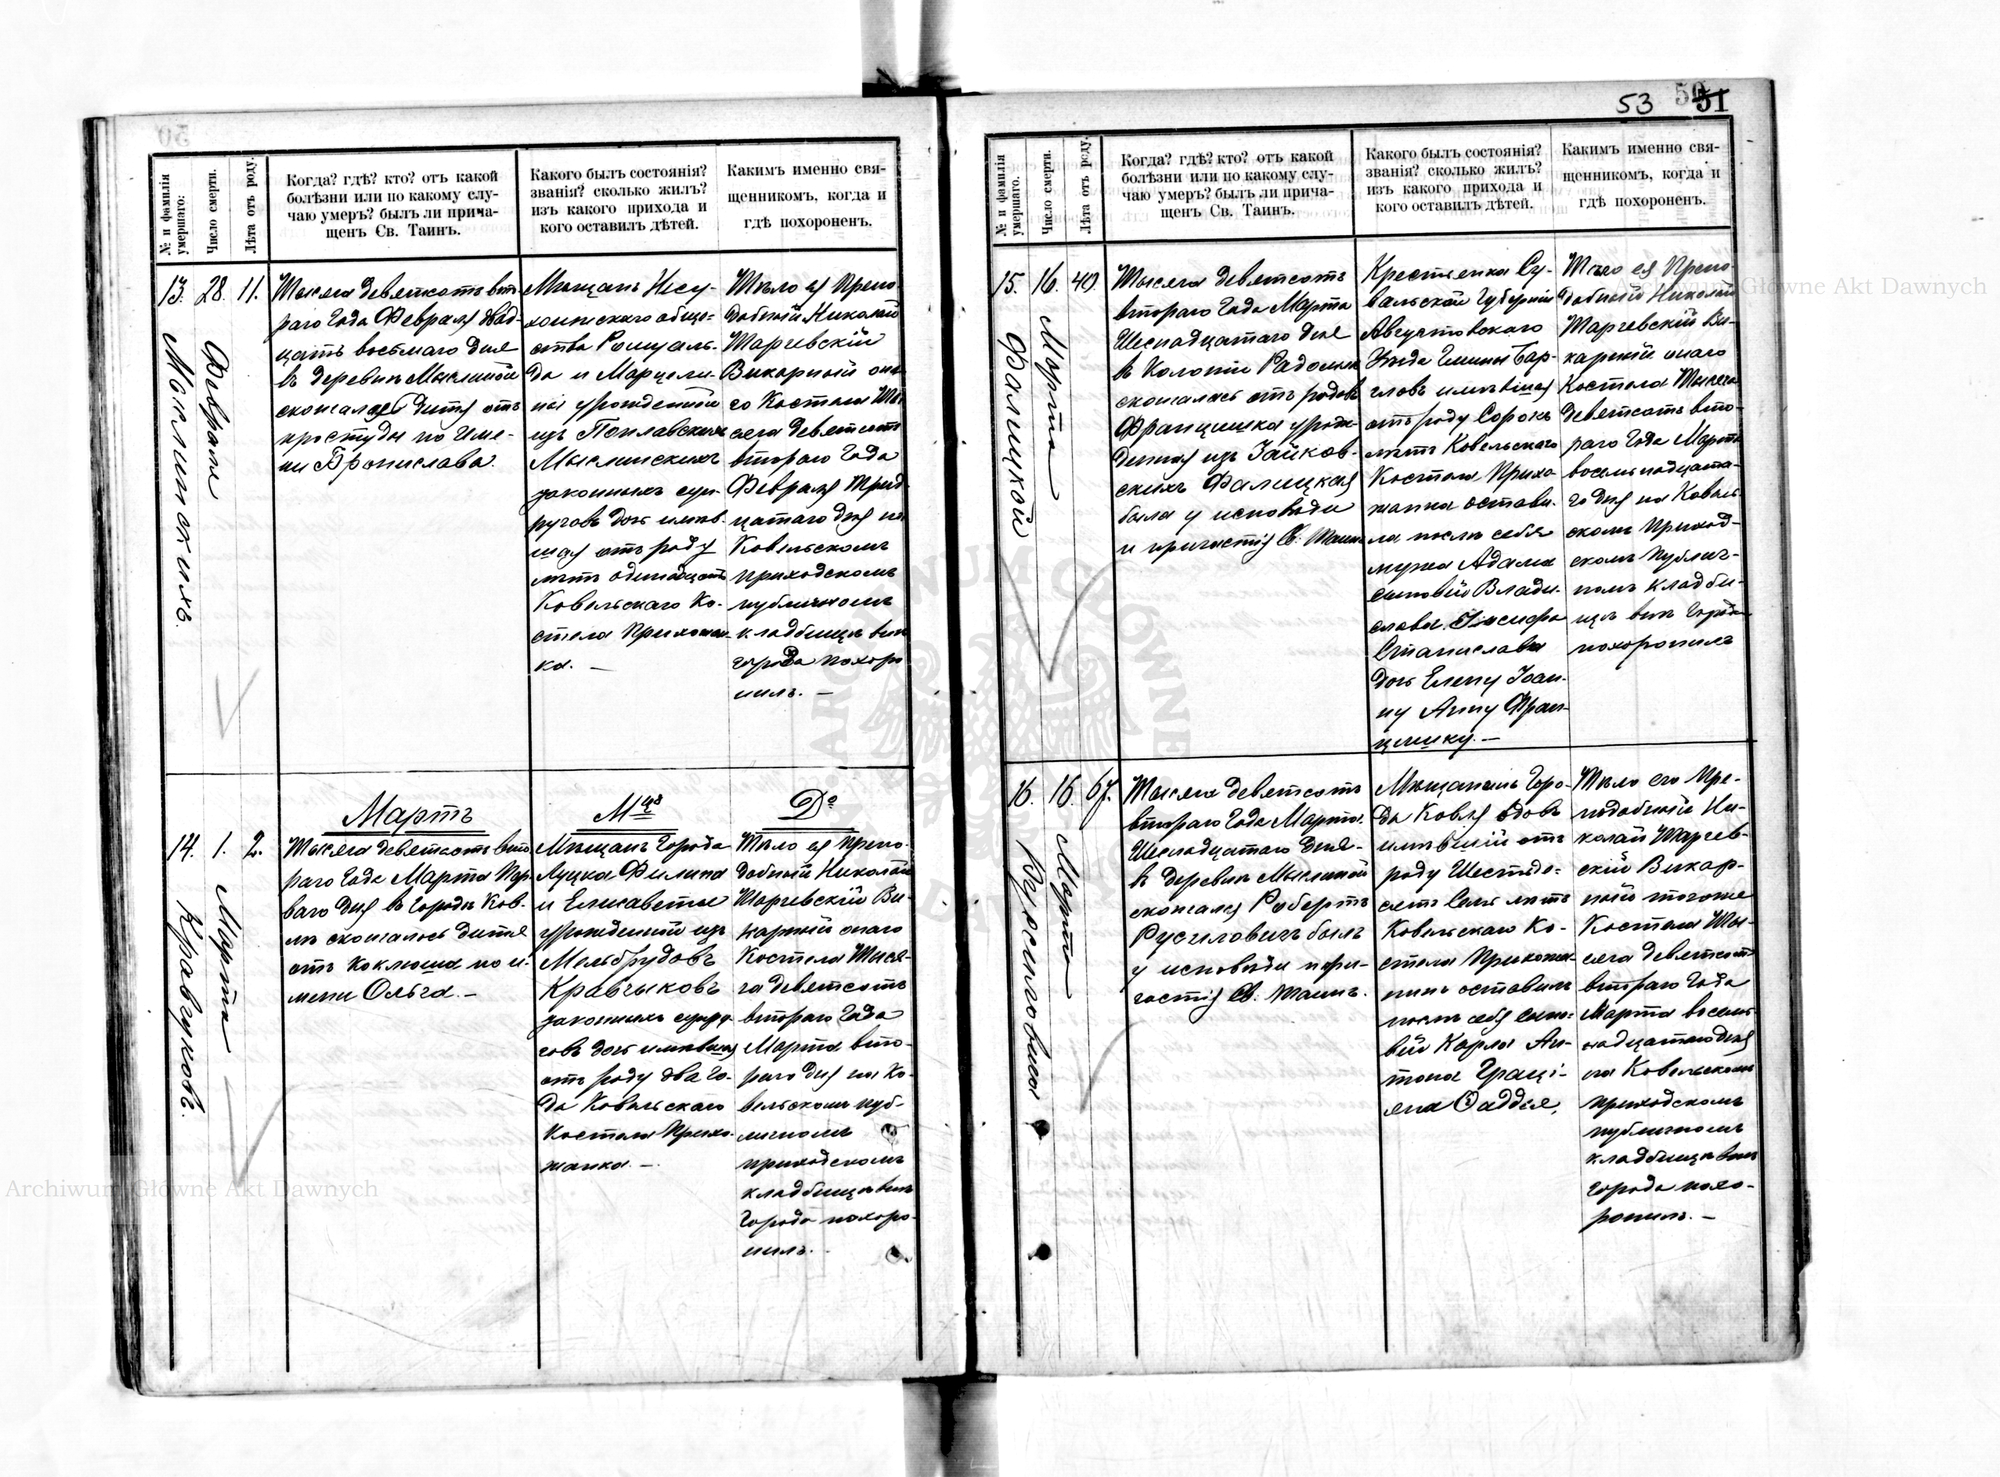 53 50 51
№ и фамилія умершаго:
Число смерти.
Лѣта отъ роду.
Когда? гдѣ? кто? отъ какой
болѣзни или по какому слу-
чаю умеръ? былъ ли прича-
щенъ Св. Таинъ.
Какого былъ состоянія?
званія? сколько жилъ?
изъ какого прихода и
кого оставилъ дѣтей.
Каким именно свя-
щенникомъ, когда и
гдѣ похороненъ.
13.
28.
11.
Февраля
Мыслинскихъ.
Тысяча девятсотъ вто-
раго Года Февраля двад-
цать восьмаго дня
въ деревнѣ Мыслиной
скончалась дитя отъ
простуды по Име-
ни Бронислава.
Мѣщанъ
скаго обще-
ства Ромуаль-
да и Марцели-
ны урожденной
изъ Поплавскихъ
Мыслинскихъ
законныхъ суп-
руговъ дочь имѣв-
шая отъ роду
лѣтъ одинадцать
Ковельскаго Ко-
стела Прихожан-
ка. —
Тѣло ея Препо-
добный Николай
Шаргевскій
Викарный она-
го Костела Ты-
сяча девятсотъ
втораго Года
Февраля Трид-
цатаго дня на
Ковельскомъ
приходскомъ
публичномъ
кладбищѣ внѣ
города похоро-
нилъ. —
Мартъ
М-ца
Dº
14.
1.
2.
Марта
Кравчуковъ.
Тысяча девятсотъ вто-
раго Года Марта Пер-
ваго дня въ Городѣ Ков-
лѣ скончалось дитя
отъ коклюша по и-
мени Ольга. —
Мѣщанъ Города
Луцка Филипа
и Елисаветы
урожденной изъ
Мельбрудовъ
Кравчуковъ
законныхъ супру-
говъ дочь имѣвшая
отъ роду два Го-
да Ковельскаго
Костела Прихо-
жанка. —
Тѣло ея Препо-
добный Николай
Шаргевскій Ви-
карный онаго
Костела Тыся-
ча девятсотъ
втораго Года
Марта вто-
раго дня на Ко-
вельскомъ пуб-
личномъ
приходскомъ
кладбищѣ внѣ
Города похоро-
нилъ. —
№ и фамилія умершаго.
Число смерти.
Лѣта отъ роду.
Когда? гдѣ? кто? отъ какой
болѣзни или по какому слу-
чаю умеръ? былъ ли прича-
щенъ Св. Таинъ.
Какого былъ состоянія?
званія? сколько жилъ?
изъ какого прихода и
кого оставилъ дѣтей.
Каким именно свя-
щенникомъ, когда и
гдѣ похороненъ.
15.
16.
40.
Марта
Фалицкой
Тысяча девятсотъ
втораго Года Марта
Шеснадцатаго дня
въ Колоніи
скончалась отъ родовъ
Францишка урож-
денная изъ Зайков-
скихъ Фалицкая
была у исповѣди
и причастія Св. Таинъ
Крестьянка Су-
вальской Губерніи
Августовскаго
Уѣзда Гмины Бар-
гловъ имѣвшая
отъ роду Сорокъ
лѣтъ Ковельскаго
Костела Прихо-
жанка остави-
ла послѣ себя
мужа Адама
сыновей Влади-
слава Іосифа
Станислава
дочь Елену Іоан-
ну Анну Фран-
цишку. —
Тѣло ея Препо-
добный Николай
Шаргевскій Ви-
карный онаго
Костела Тысяча
девятсотъ вто-
раго Года Марта
восемьнадцата-
го дня на Ковель-
скомъ приход-
скомъ публич-
номъ кладби-
щѣ внѣ Города
похоронилъ
16.
16.
67.
Марта
Русиловича
Тысяча девятсотъ
втораго Года Марта
Шеснадцатаго дня
въ деревнѣ Мыслиной
скончался Робертъ
Русиловичъ былъ
у исповѣди при-
частія Св. Таинъ.
Мѣщанинъ Горо-
да Ковля вдовъ
имѣвшій отъ
роду Шестьде-
сятъ Семь лѣтъ
Ковельскаго Ко-
стела Прихожа-
нинъ оставилъ
послѣ себя сыно-
вей Карла Ан-
тона Граці-
яна Фаддея.
Тѣло его Пре-
подобный Ни-
колай Шаргев-
скій Викар-
ный тогоже
Костела Ты-
сяча девятсотъ
втораго Года
Марта восемь-
надцатаго дня
на Ковельскомъ
приходскомъ
публичномъ
кладбищѣ внѣ
Города похо-
ронилъ. —
Archiwum Główne Akt Dawnych
Archiwum Główne Akt Dawnych